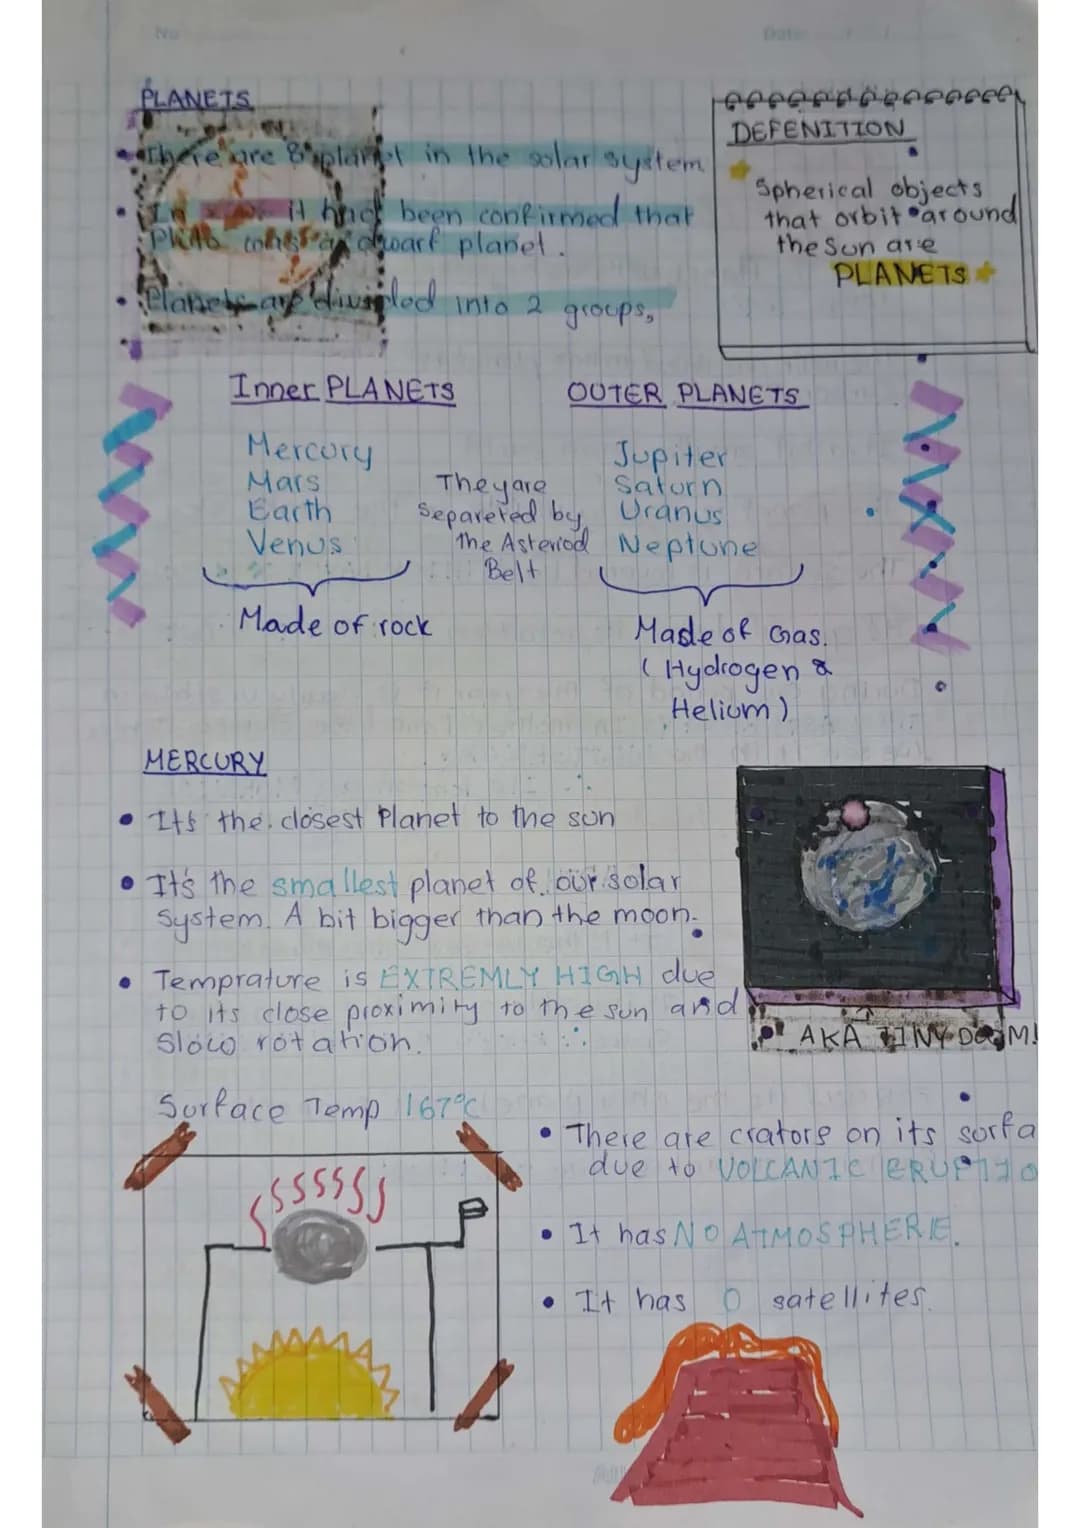 No
Date:
PLANETS
There are 8 planet in the solar system
In it had been confirmed that
Pluto was a dwarf planet.
Planets are divided into 2 groups,
DEFENITION
Spherical objects
that orbit around
the sun are
PLANETS
Inner PLANETS
Mercury
Mars
Earth
Venus
Made of rock
They are
Separeted by
the Asteriod
Belt
OUTER PLANETS
Jupiter
Saturn
Uranus
Neptune
Made of Gas.
(Hydrogen &
Helium)
MERCURY
Its the closest Planet to the sun
It's the smallest planet of our solar
System. A bit bigger than the moon.
Temprature is EXTREMLY HIGH due
to its close proximity to the sun and
Slow rotation.
AKA TINY DOOM!
Surface Temp 167°C
There are crators on its surfa
due to VOLCANIC ERUPTIO
It has NO ATMOSPHERE.
It has 0 satellites.